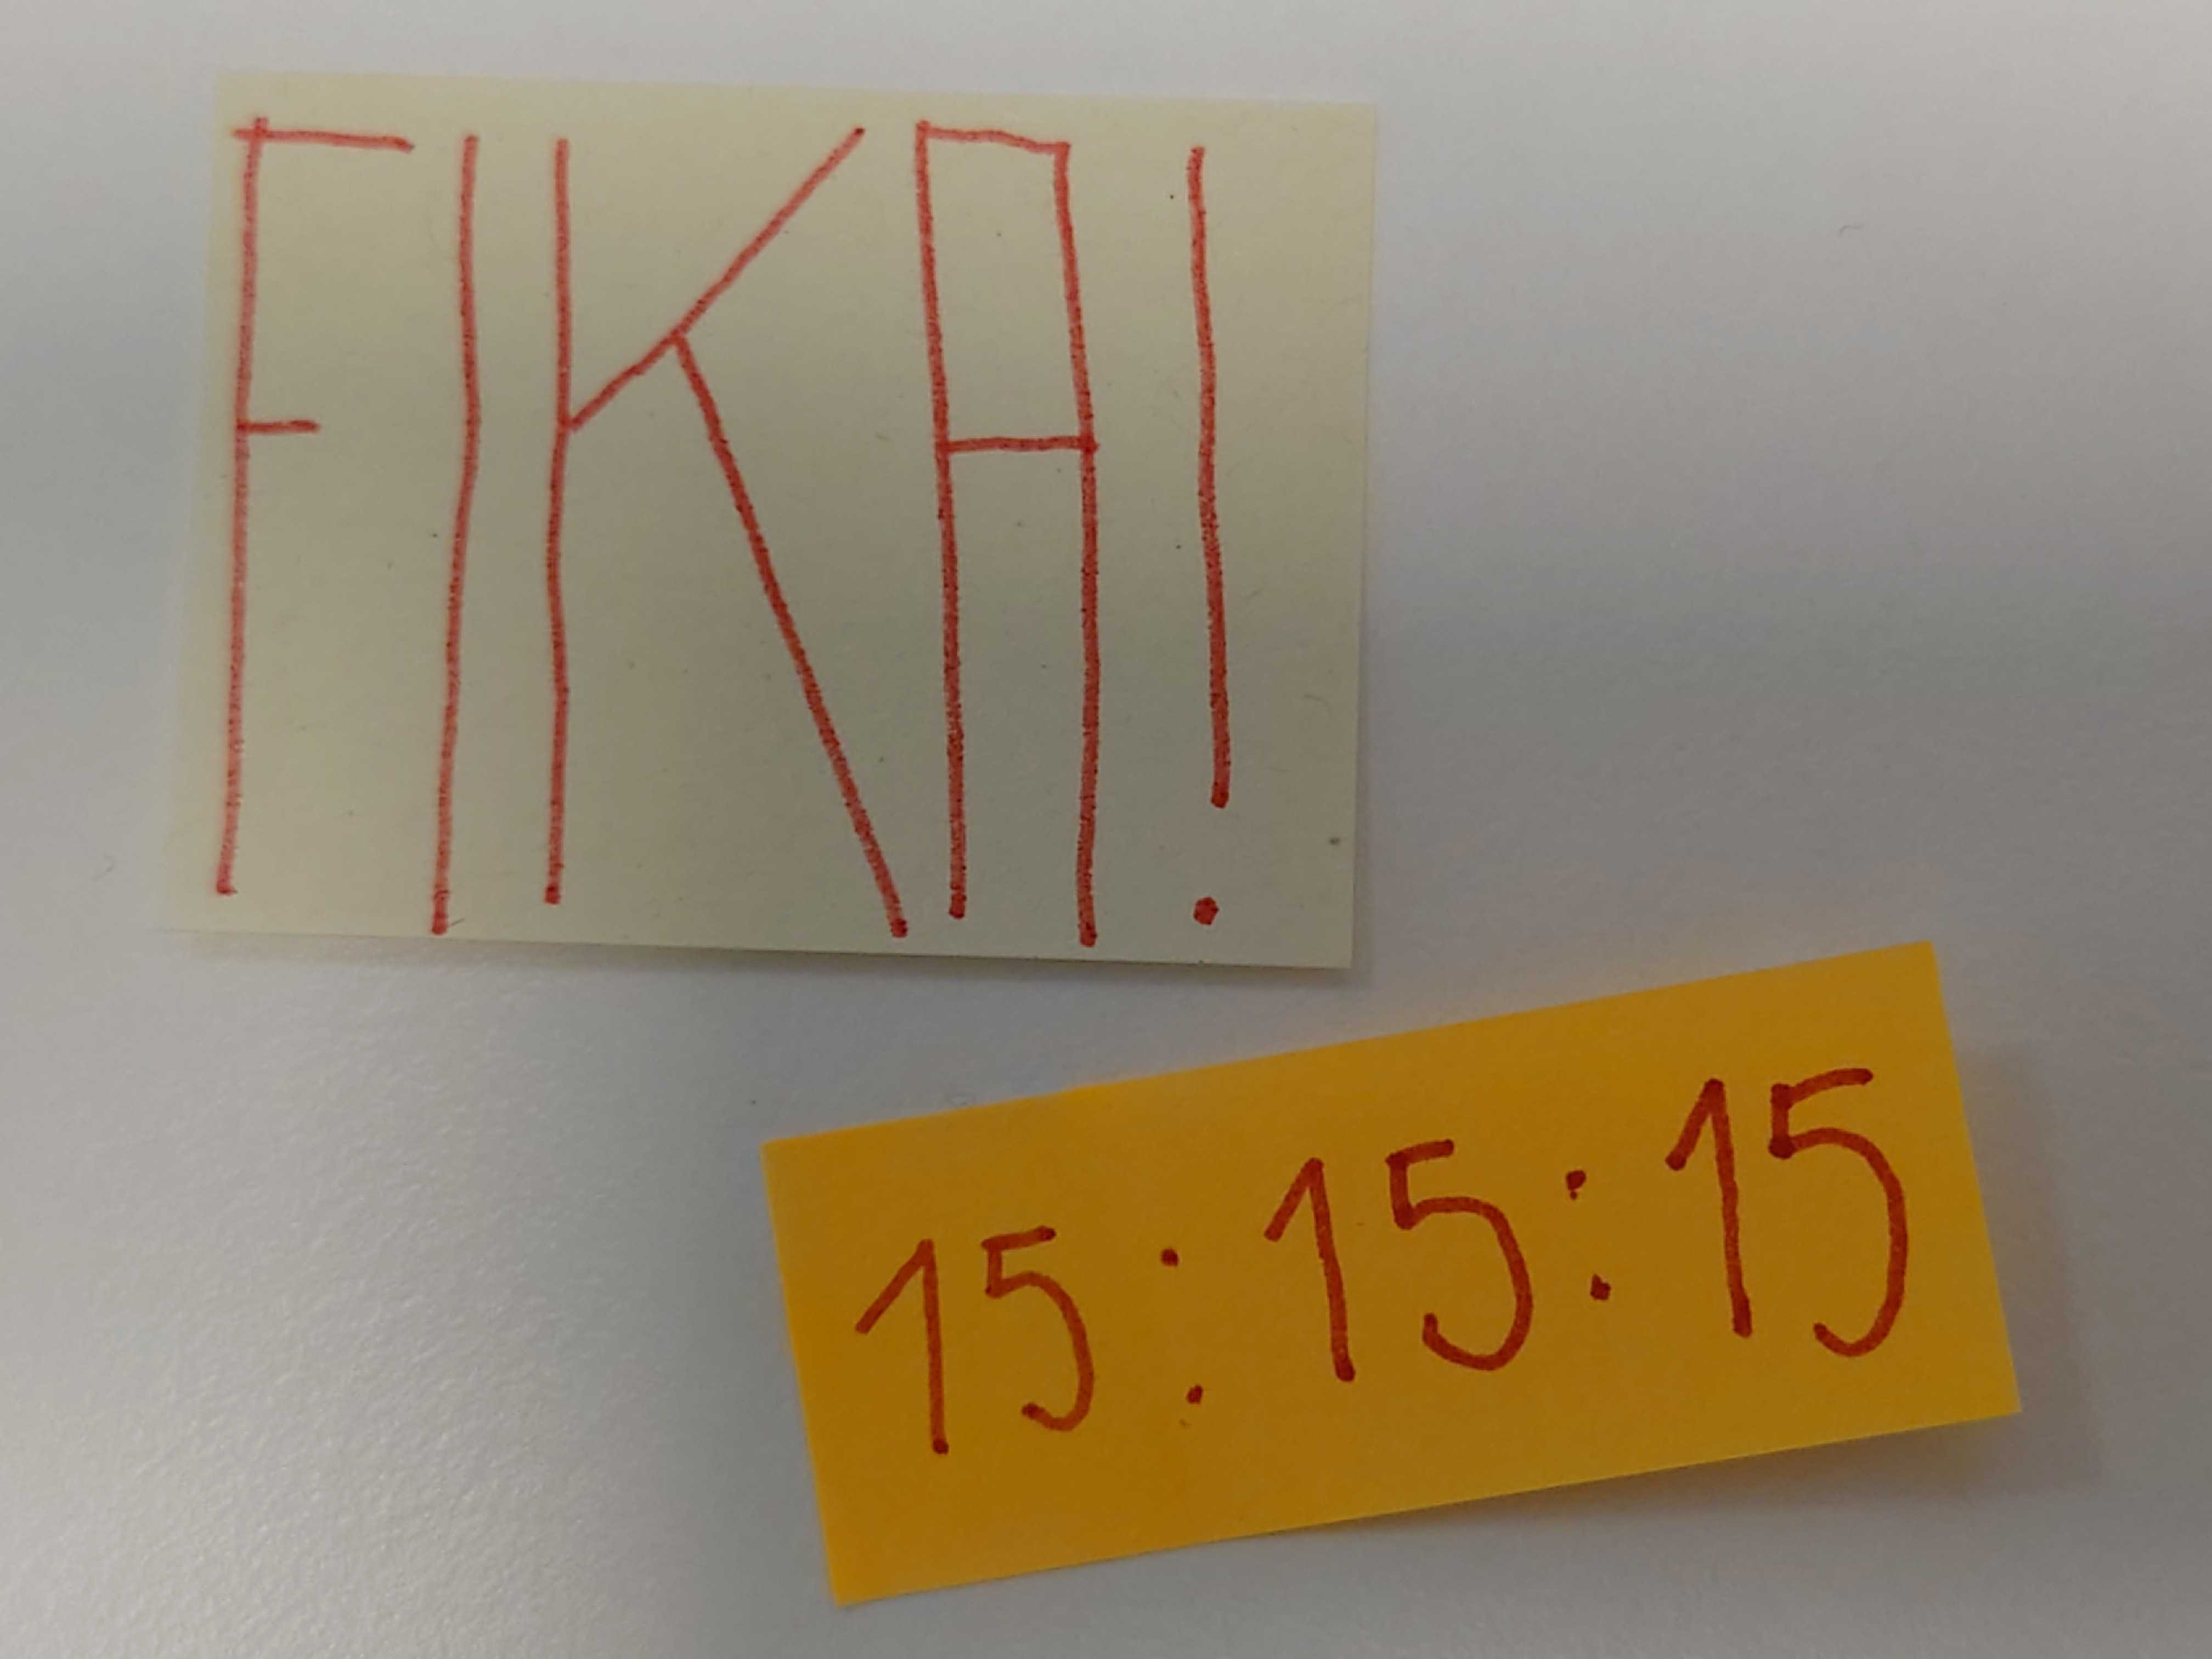 FIKA!
15:15:15